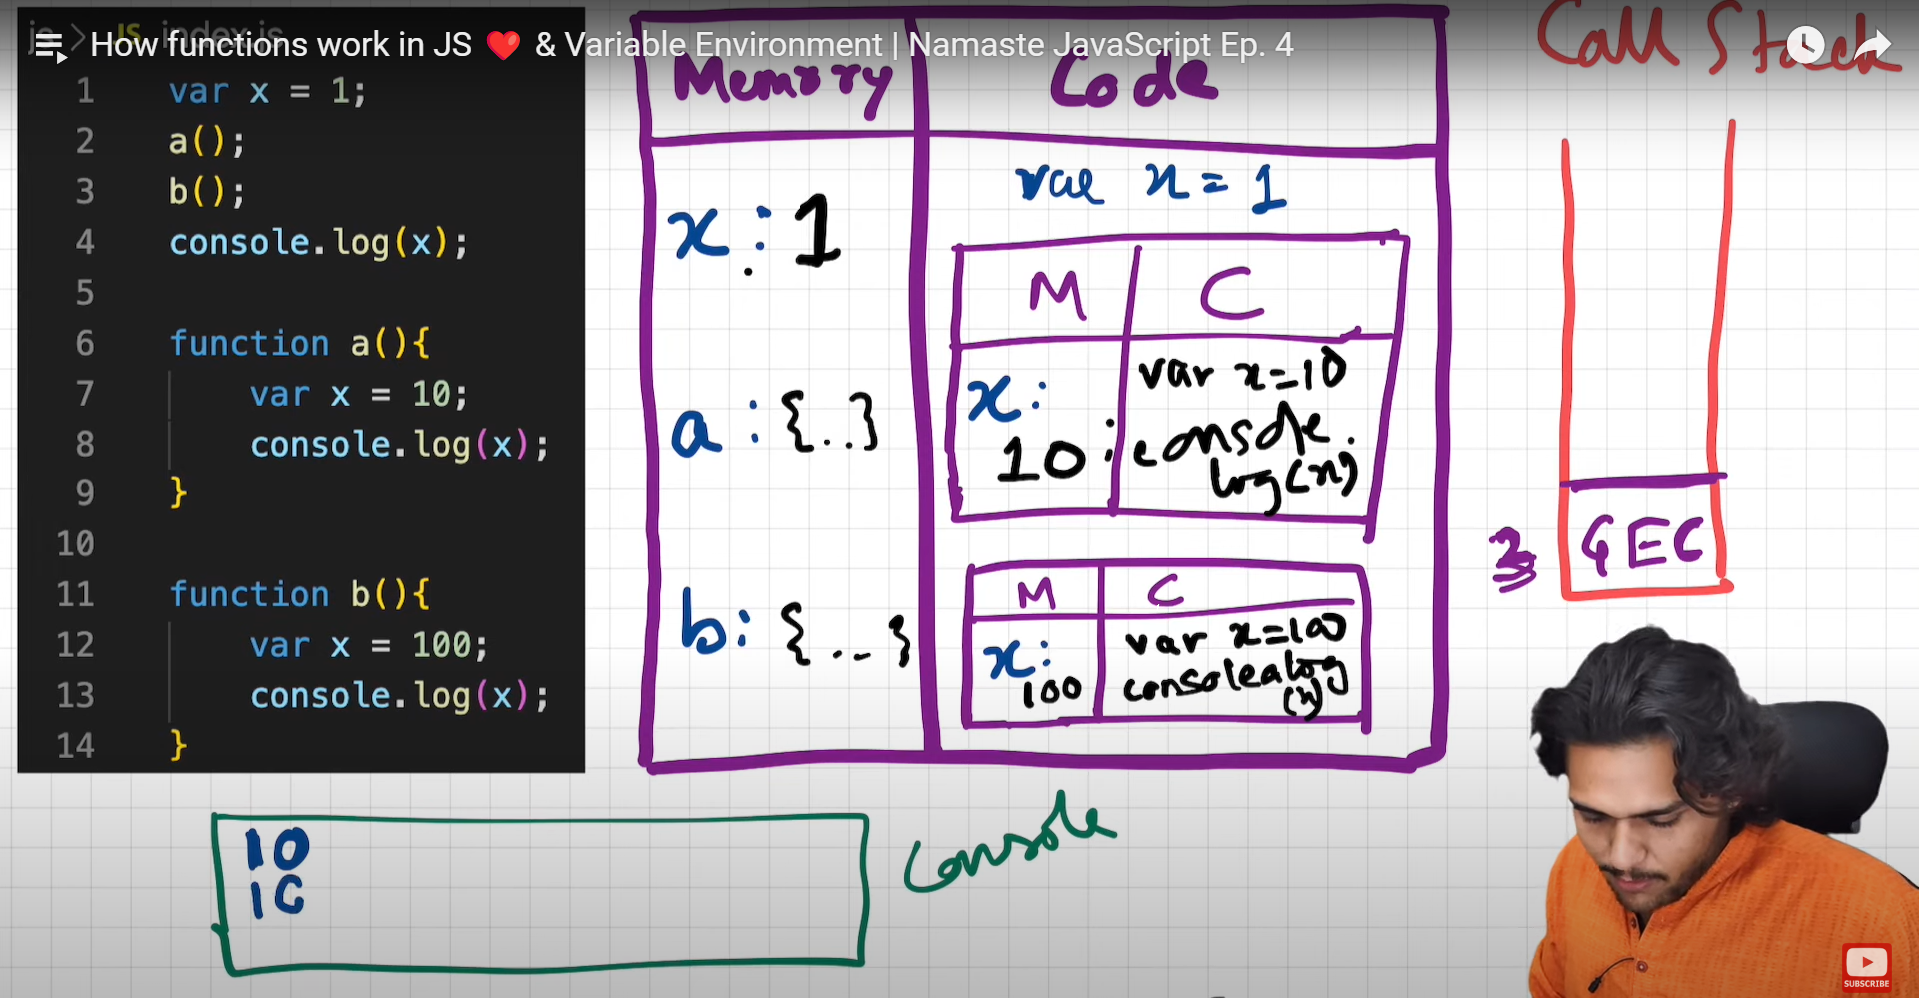 js > JS index.js
How functions work in JS ❤️ & Variable Environment | Namaste JavaScript Ep. 4
1 var x = 1;
2 a();
3 b();
4 console.log(x);
5
6 function a(){
7 var x = 10;
8 console.log(x);
9 }
10
11 function b(){
12 var x = 100;
13 console.log(x);
14 }
Memory Code
x : 1
a : {..}
b : {..}
var x = 1
M C
x :
10
var x=10
console.
log(x)
M C
x :
100
var x=100
console.log
(x)
Call Stack
GEC
10
10
Console
SUBSCRIBE